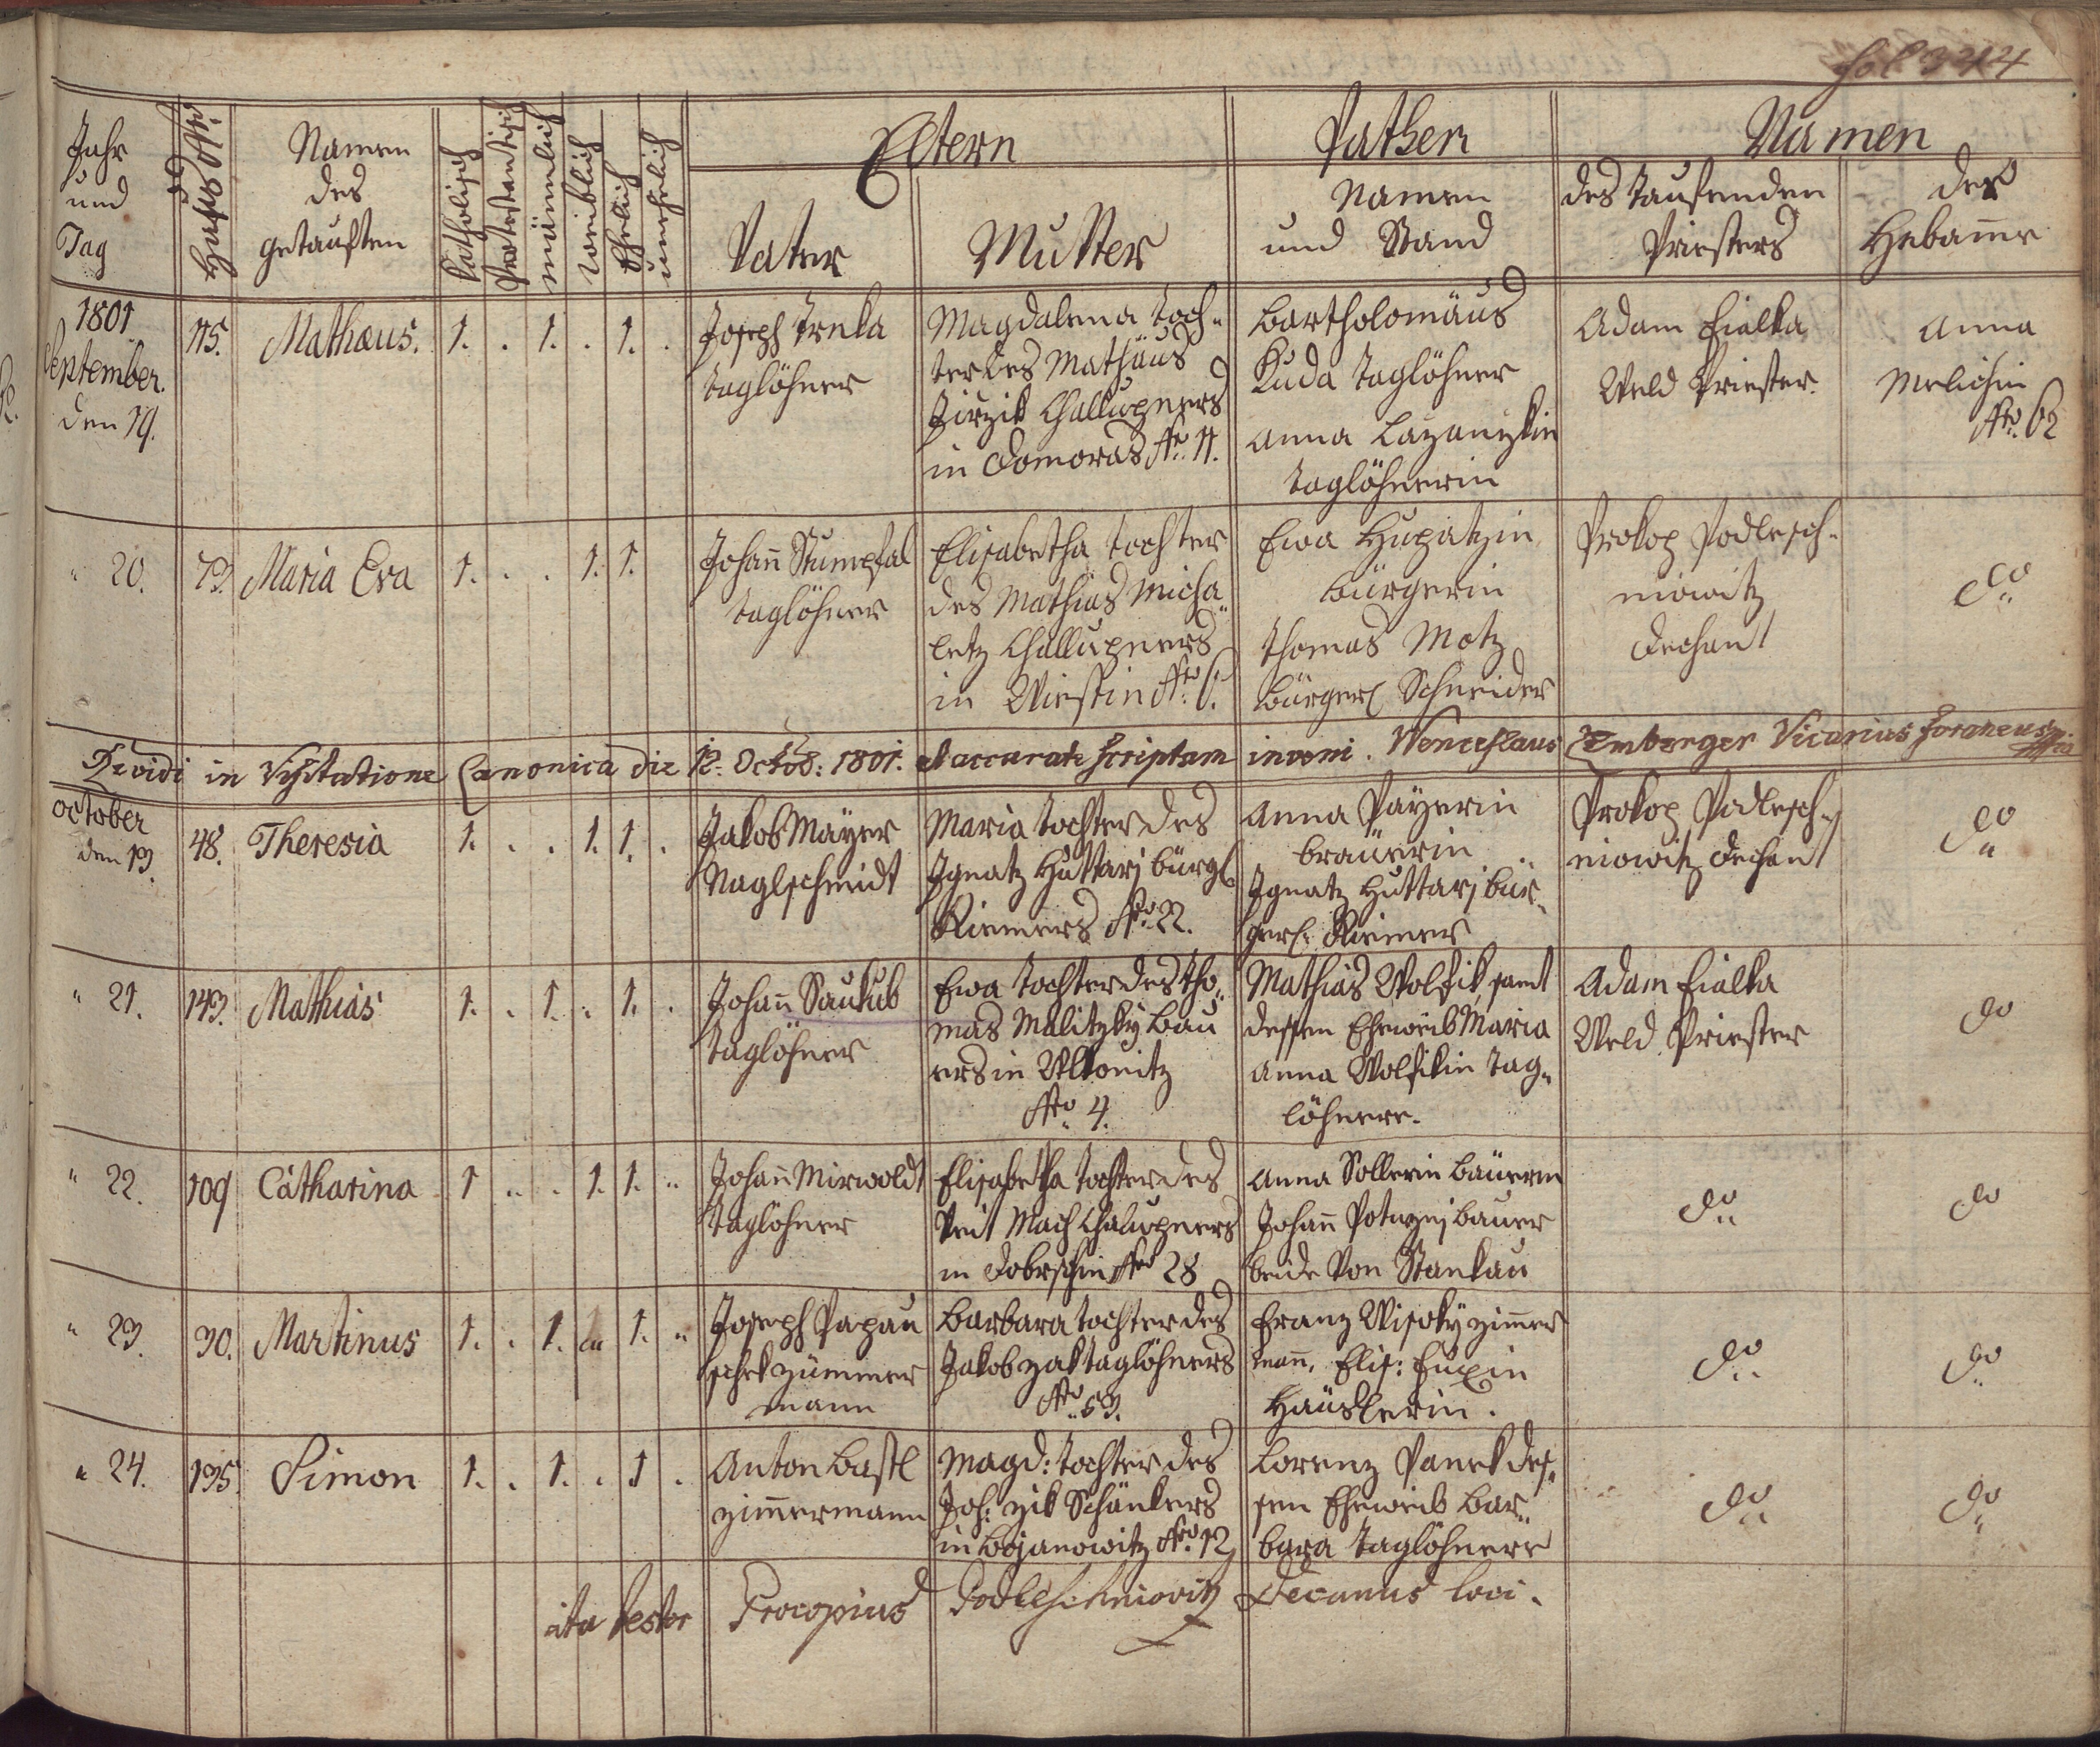 fol 344
Jahr und Tag
Haus Nro.
Namen des getauften
Katholisch
Protestantisch
männlich
weiblich
Ehelich
unehelich
Eltern
Vater
Mutter
Pathen
Namen und Stand
Namen
des Taufenden Priesters
der Hebam̄e
1801.
September.
den 19.
115.
Mathæus.
1. . 1. . 1. .
Joseph Trnka
Taglöhner
Magdalena Toch-
ter des Mathäus
Jirzik Challupners
in Domoras Nro. 11.
Bartholomäus
Kuda Taglöhner
Anna Lazanzkin
Taglöhnerin
Adam Fialka
Weld Priester.
Anna
Melichin
Nro. 62
" 20.
73.
Maria Eva
1. . . 1. 1.
Johañ Stumpfal
Taglöhner
Elisabetha Tochter
des Mathias Micha-
letz Challupners
in Wiestin Nro. 6.
Ewa Hupatzin
bürgerin
Thomas Motz
bürgerl Schneider
Prokop Podlesch-
niowitz
Dechant
do
Revidi in Visitatione Canonica die 12. Octob: 1801. et accurate scriptam inveni. Wenceslaus Emberger Vicarius foraneus
October
den 13.
48.
Theresia
1. . . 1. 1. .
Jakob Mayer
Naglschmidt
Maria Tochter des
Ignatz Huttarj bürgl
Riemers Nro. 22.
Anna Payerin
bräuerin
Ignatz Huttarj bür-
gerl. Riemer
Prokop Podlesch-
niowitz Dechant
do
" 21.
143.
Mathias
1. . 1. . 1. .
Johañ Saukub
Taglöhner
Ewa Tochter des Tho-
mas Malitzky Bau
ers in Wlkonitz
Nro. 4.
Mathias Wolfik samt
dessen Eheweib Maria
Anna Wolfikin Tag-
löhnere.
Adam Fialka
Weld Priester
do
" 22.
109
Catharina
1 .. . 1. 1. "
Johañ Mirwoldt
Taglöhner
Elisabetha Tochter des
Veit Mach Chalupners
in Dobrschin Nro 28
Anna Sollerin Bäuerin
Johañ Potuznj bauer
beide von Stankau
do
do
" 23.
30.
Martinus
1. . 1. " 1. "
Joseph Papau
schek Zümmer
mann
Barbara Tochter des
Jakob Zak Taglöhners
Nro. 53.
Franz Wisoky Zim̄er
mañ, Elis: Fuxin
Häuslerin.
do
do
" 24.
135.
Simon
1. . 1. . 1 .
Anton Bastl
Zim̄ermann
Magd: Tochter des
Joh: Zik Schänkers
in Bojanowitz Nro. 12
Lorenz Vanek des-
sen Eheweib Bar-
bara Taglöhnere
do
do
ita testor Procopius Podleschniovitz Decanus loci.